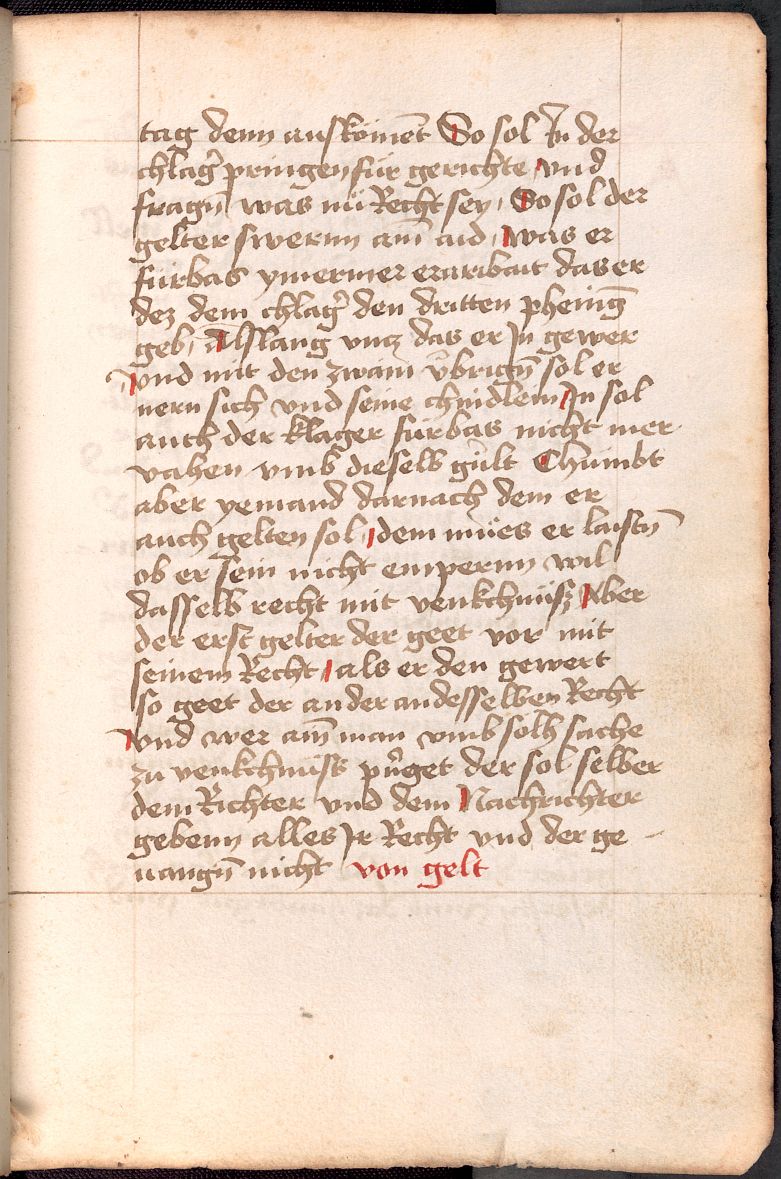 tag denn auskömēt So sol In der
chlag̛ pringen für gerichte und
fragn̄ was nü Recht sey, So sol der
gelter swernn am̄ aid, was er
fürbas ymermer eraribait das er
dez dem chlag̛ den dritten phenīg
geb, Alslang vncz das er In gewer
vnd mit den zwain übrign̄ sol er
nern sich vnd seine chindlein In sol
auch der klager fürbas nicht mer
vahen vmb dieselb gült Chumbt
aber yemand darnach dem er
auch gelten sol, dem mües er laistn̄
ob er sein nicht empernn wil
dasselb recht mit venkchnüsz Aber
der erst gelter der geet vor mit
seinem Recht, als er den gewert
so geet der ander an desselben Recht
vnd wer ain̄ man vmb solh sache
zu venkchnüss pr̛get der sol selber
dem Richter vnd dem Nachrichter
gebenn alles Ir Recht vnd der ge-
uangn̄ nicht von gelt